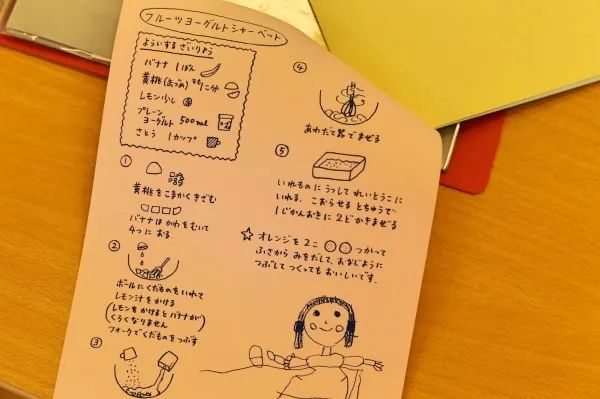 フルーツヨーグルトシャーベット
よういするざいりょう
バナナ 1ぽん
黄桃(缶づめ) 2分
レモン少し
プレーン
ヨーグルト 500ml
さとう 1カップ
①
黄桃をこまかくきざむ
バナナはかわをむいて
4つにおる
②
ボールにくだものをいれて
レモン汁をかける
(レモンをかけるとバナナが
くろくなりません)
フォークでくだものをつぶす
③
④
あわだて器でまぜる
⑤
いれものにうつしてれいとうこに
いれる。こおらせるとちゅうで
1じかんおきに2どかきまぜる
☆オレンジを2こつかって
ふさからみをだして、おなじように
つぶしてつくってもおいしいです。